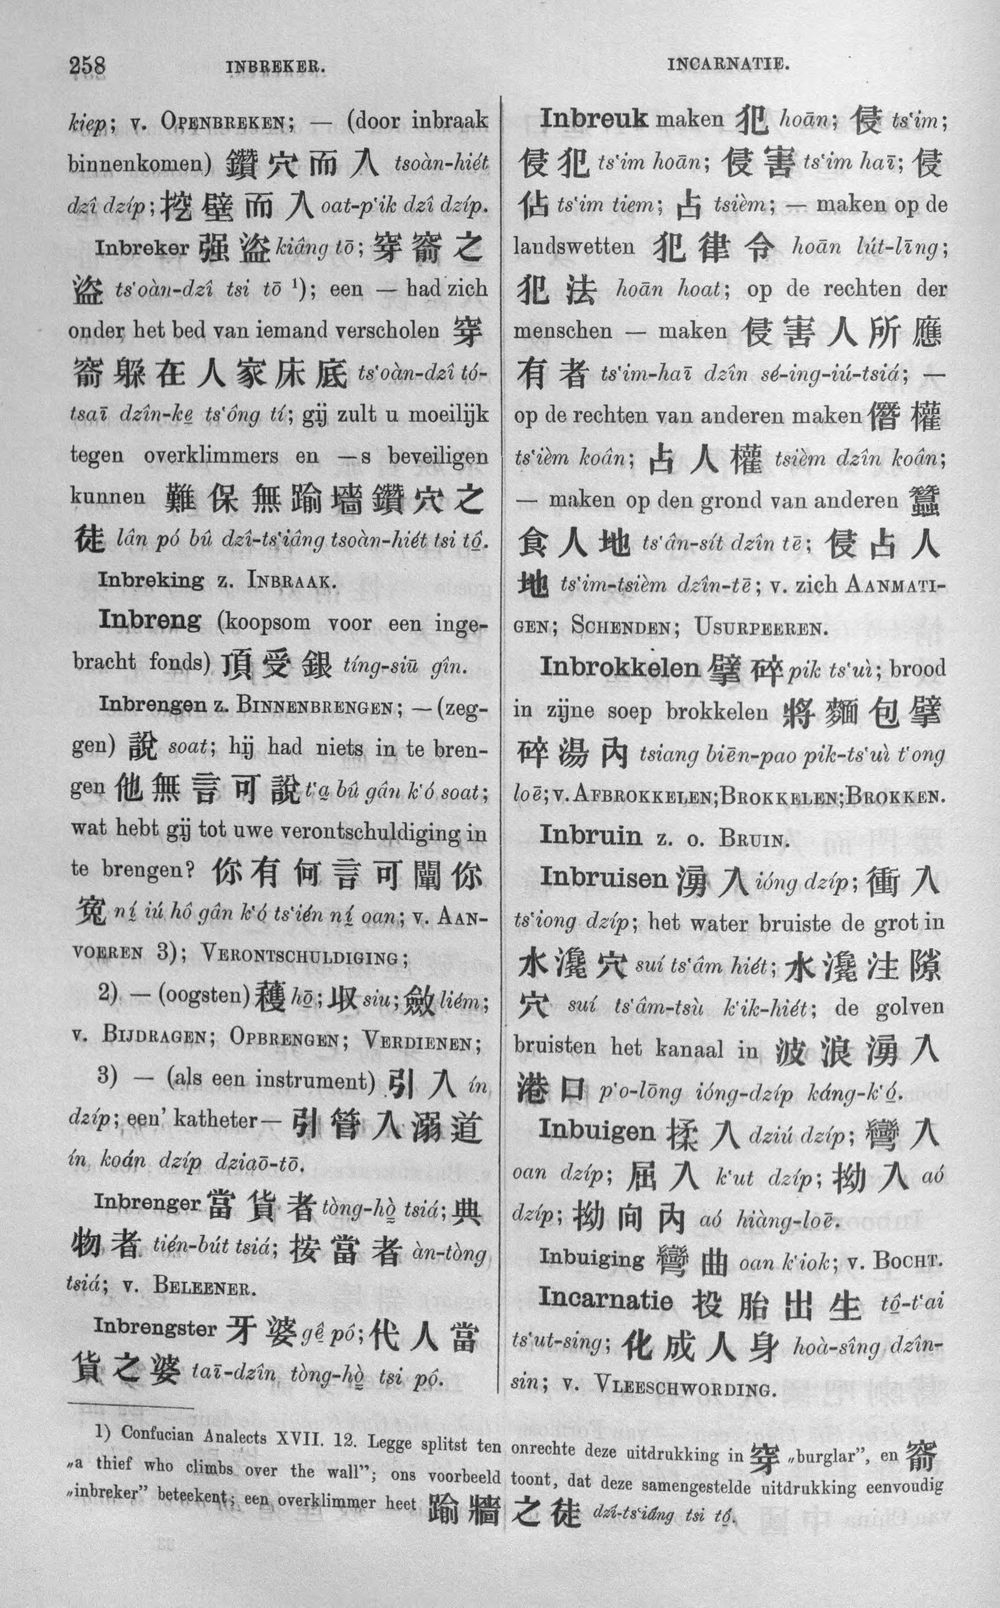 258 INBREKER. INCARNATIE.
kiep; v. OPENBREKEN; — (door inbraak
binnenkomen) 鑽穴而入 tsoàn-hiét
dzî dzíp; 挖壁而入 oat-p‘ik dzî dzíp.
Inbreker 强盜 kiâng tō; 穿窬之
盜 ts‘oàn-dzî tsi tō ¹); een — had zich
onder het bed van iemand verscholen 穿
窬躲在人家床底 ts‘oàn-dzî tó-
tsaī dzîn-ke̤ ts‘óng tí; gij zult u moeilijk
tegen overklimmers en —s beveiligen
kunnen 難保無踰墻鑽穴之
徒 lân pó bû dzî-ts‘iâng tsoàn-hiét tsi tô̤.
Inbreking z. INBRAAK.
Inbreng (koopsom voor een inge-
bracht fonds) 頂受銀 tíng-siū gîn.
Inbrengen z. BINNENBRENGEN; — (zeg-
gen) 說 soat; hij had niets in te bren-
gen 他無言可說 t‘a̤ bû gân k‘ó soat;
wat hebt gij tot uwe verontschuldiging in
te brengen? 你有何言可闡你
寃 ní̤ iú hô gân k‘ó ts‘ién ní̤ oan; v. AAN-
VOEREN 3); VERONTSCHULDIGING;
2) — (oogsten) 穫 hō̤; 収 siu; 斂 liém;
v. BIJDRAGEN; OPBRENGEN; VERDIENEN;
3) — (als een instrument) 引入 ín
dzíp; een’ katheter — 引管入溺道
ín koán dzíp dziaō-tō.
Inbrenger 當貨者 tòng-hò̤ tsiá; 典
物者 tién-bút tsiá; 按當者 àn-tòng
tsiá; v. BELEENER.
Inbrengster 牙婆 gê pó; 代人當
貨之婆 taī-dzîn tòng-hò̤ tsi pó.
Inbreuk maken 犯 hoān; 侵 ts‘im;
侵犯 ts‘im hoān; 侵害 ts‘im haī; 侵
佔 ts‘im tiem; 占 tsièm; — maken op de
landswetten 犯律令 hoān lút-līng;
犯法 hoān hoat; op de rechten der
menschen — maken 侵害人所應
有者 ts‘im-haī dzîn sé-ing-iú-tsiá; —
op de rechten van anderen maken 僭權
ts‘ièm koân; 占人權 tsièm dzîn koân;
— maken op den grond van anderen 蠶
食人地 ts‘ân-sít dzîn tē; 侵占人
地 ts‘im-tsièm dzîn-tē; v. zich AANMATI-
GEN; SCHENDEN; USURPEEREN.
Inbrokkelen 擘碎 pik ts‘uì; brood
in zijne soep brokkelen 將麵包擘
碎湯內 tsiang biēn-pao pik-ts‘uì t‘ong
loē; v. AFBROKKELEN; BROKKELEN; BROKKEN.
Inbruin z. o. BRUIN.
Inbruisen 湧入 ióng dzíp; 衝入
ts‘iong dzíp; het water bruiste de grot in
水瀺穴 suí ts‘âm hiét; 水瀺注隙
穴 suí ts‘âm-tsù k‘ik-hiét; de golven
bruisten het kanaal in 波浪湧入
港口 p‘o-lōng ióng-dzíp káng-k‘ó̤.
Inbuigen 揉入 dziú dzíp; 彎入
oan dzíp; 屈入 k‘ut dzíp; 拗入 aó
dzíp; 拗向內 aó hiàng-loē.
Inbuiging 彎曲 oan k‘iok; v. BOCHT.
Incarnatie 投胎出生 tô̤-t‘ai
ts‘ut-sing; 化成人身 hoà-sîng dzîn-
sin; v. VLEESCHWORDING.
1) Confucian Analects XVII. 12. Legge splitst ten onrechte deze uitdrukking in 穿 „burglar”, en 窬
„a thief who climbs over the wall”; ons voorbeeld toont, dat deze samengestelde uitdrukking eenvoudig
„inbreker” beteekent; een overklimmer heet 踰牆之徒 dzî-ts‘iâng tsi tô̤.